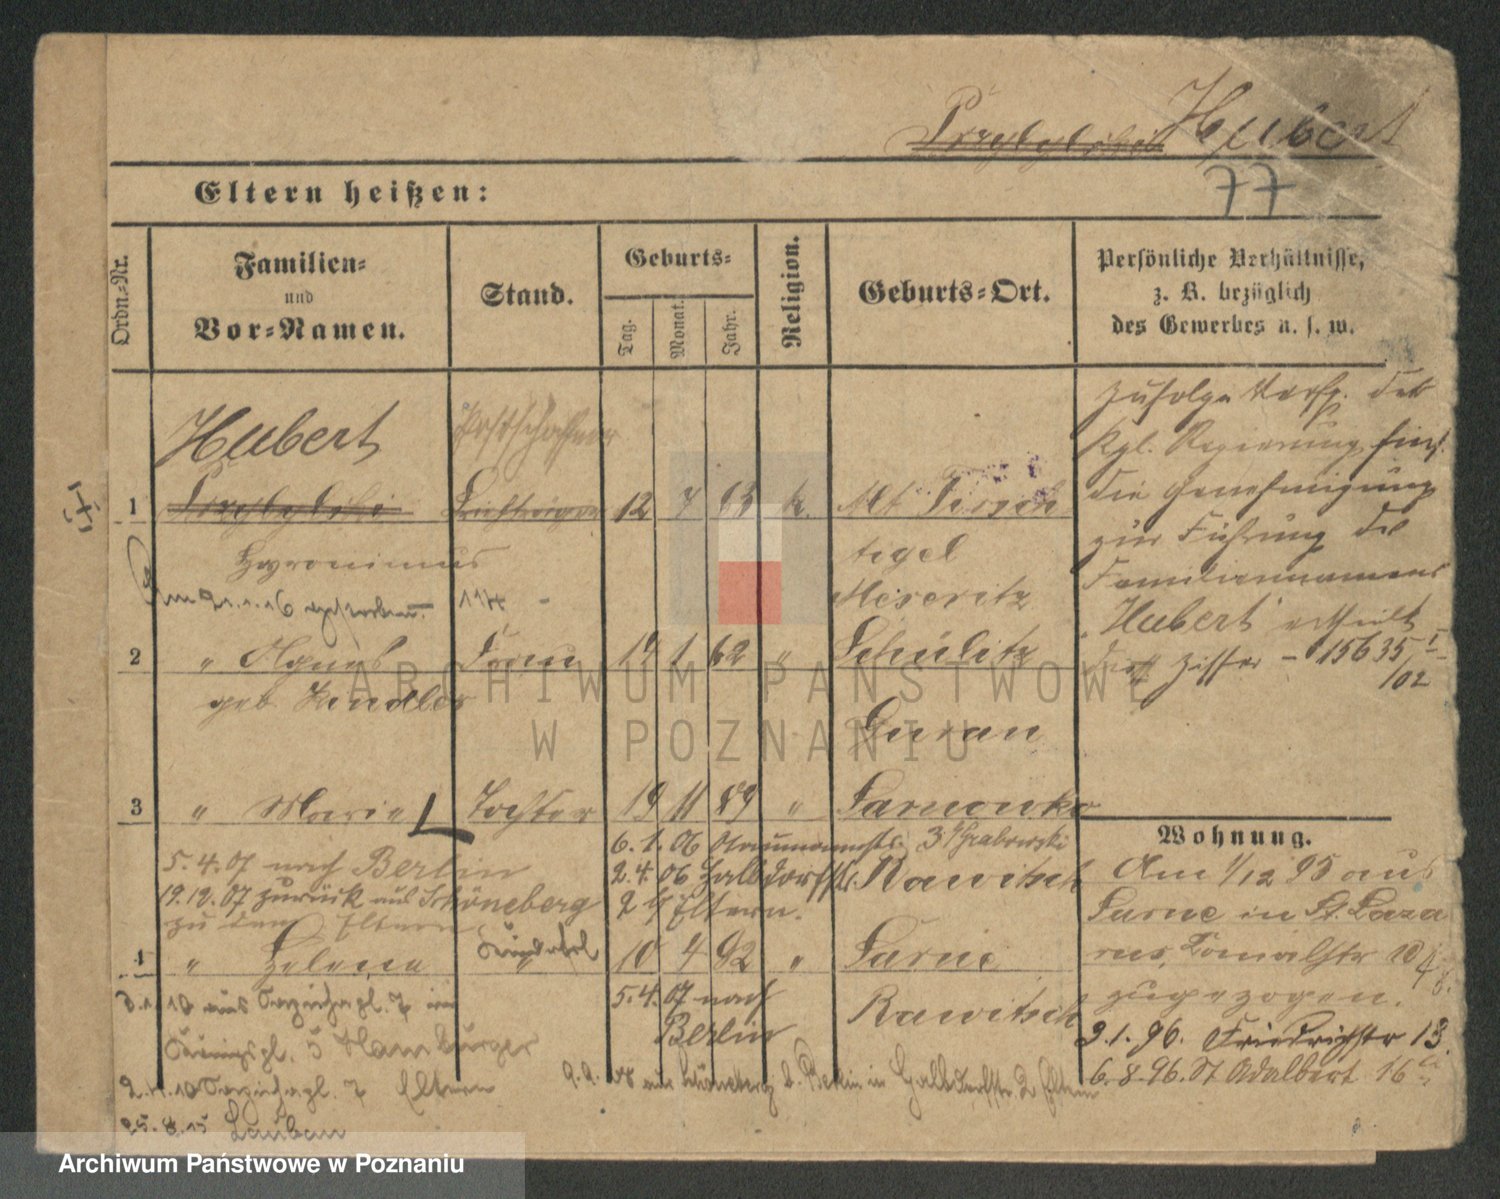 Przybylski Hubert
77
Eltern heißen:
Ordn.-Nr.
Familien-
und
Vor-Namen.
Stand.
Geburts-
Tag.
Monat.
Jahr.
Religion.
Geburts-Ort.
Persönliche Verhältnisse,
z. B. bezüglich
des Gewerbes u. s. w.
Hubert Postschaffner
1 Przybylski Briefträger 12 7 65 k. Alt Tirsch
tiegel
Meseritz
Hyronimus
Am 21.1.16 gestorben. 114 -
2 " Agnes Frau 19 1 62 " Schulitz
geb.
3 " Marie Tochter 19 11 89 " Sarnowko
Rawitsch
6.1.06 3 Grabowski
2.4.06 Halbdorfstr.
2 Eltern.
5.4.07 nach Berlin
19.12.07 zurück aus Schöneberg
zu den Eltern
4 " Helena 10 4 92 " Sarne
Rawitsch
5.4.07 nach
Berlin
3.1.10 aus 7 in
Königspl. 5 Hamburger
2.11.10 7 Eltern
9.9. aus Schöneberg b. Berlin in Halbdorfstr. 2 Eltern
25.8.15 Lauban
Zufolge Verf. der
Kgl. Regierung hies.
die Genehmigung
zur Führung des
Familiennamens
"Hubert" ertheilt
Ziffer - 15635 I
/02
Wohnung.
Am 1/12 95 aus
Sarne in St. Laza
rus, 10
zugezogen.
3.1.96. Friedrichstr 13.
6.8.96. St Adalbert 16
ARCHIWUM PAŃSTWOWE
W POZNANIU
Archiwum Państwowe w Poznaniu